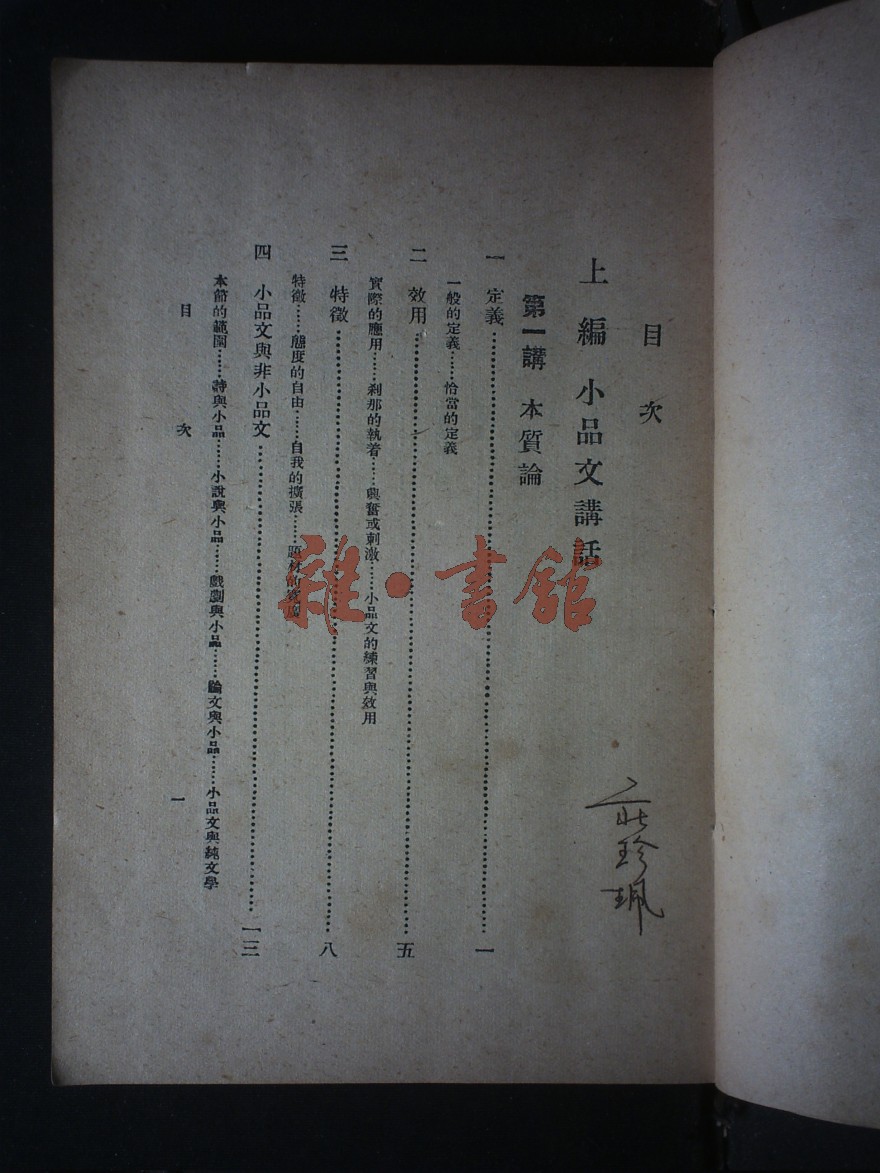 目次
上編 小品文講話
第一講 本質論
一 定義……一
一般的定義……恰當的定義
二 效用……五
實際的應用……剎那的執着……興奮或刺激……小品文的練習與效用
三 特徵……八
特徵……態度的自由……自我的擴張……題材的寬廣
四 小品文與非小品文……一三
本節的範圍……詩與小品……小說與小品……戲劇與小品……論文與小品……小品文與純文學
目次
一
雜·書館
莊珍珮